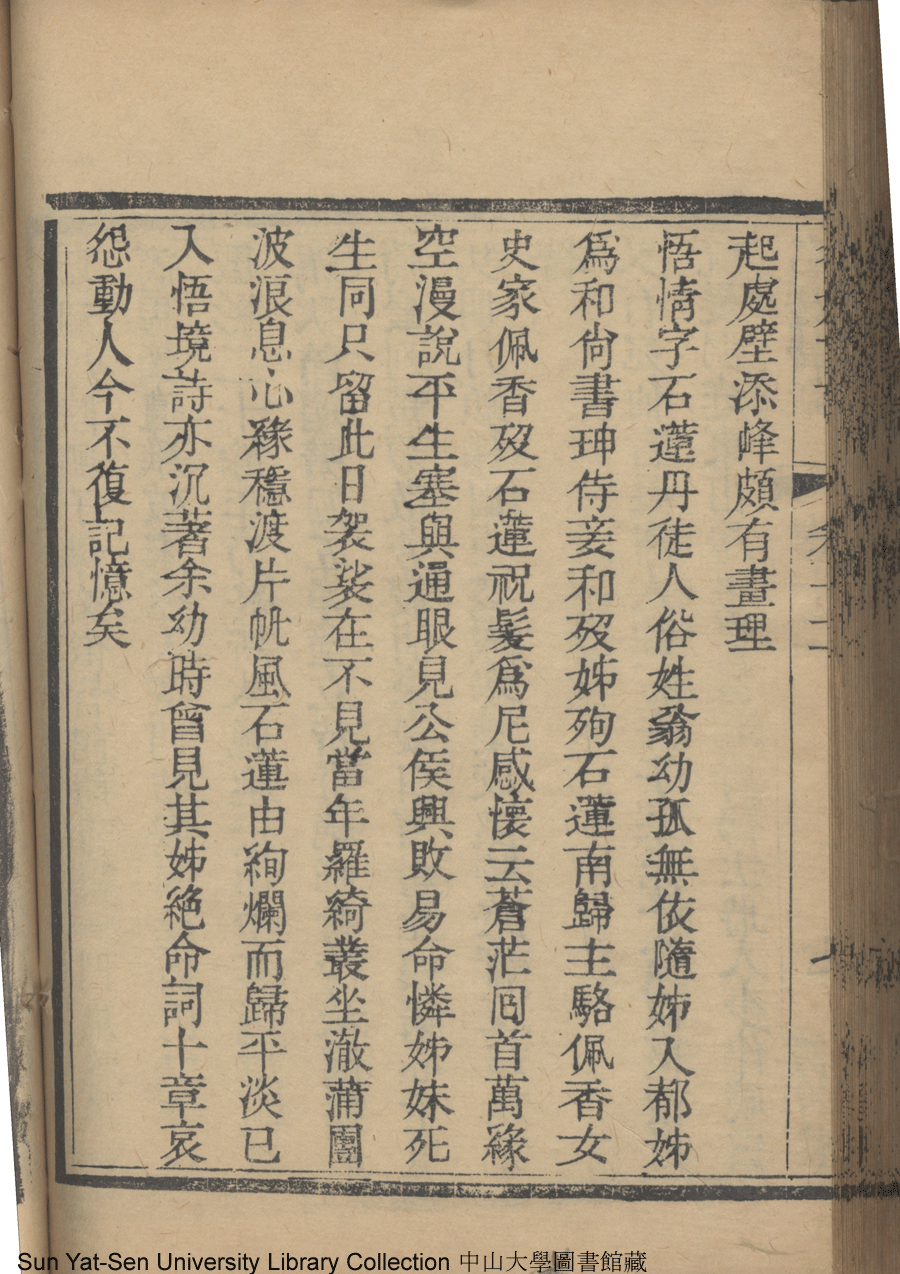 起處壁添峰頗有畫理
悟情字石蓮丹徒人俗姓翁幼孤無依隨姊入都姊
爲和尙書珅侍妾和歿姊殉石蓮南歸主駱佩香女
史家佩香歿石蓮祝髮爲尼感懷云蒼茫囘首萬緣
空漫說平生塞與通眼見公侯興敗易命憐姊妹死
生同只留此日袈裟在不見當年羅綺叢坐澈蒲團
波浪息心緣穩渡片帆風石蓮由絢爛而歸平淡已
入悟境詩亦沉著余幼時曾見其姊絶命詞十章哀
怨動人今不復記憶矣
Sun Yat-Sen University Library Collection 中山大學圖書館藏